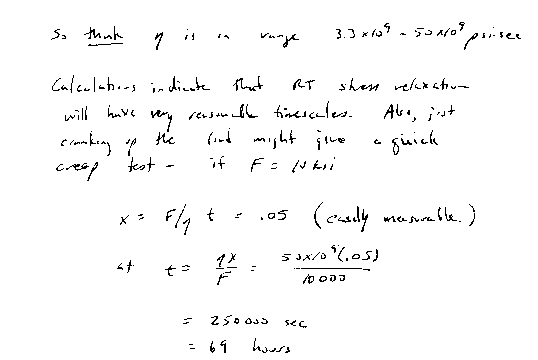 So think η is in range 3.3 x 10⁹ - 50 x 10⁹ psi·sec
Calculations indicate that RT stress relaxation
will have very reasonable timescales. Also, just
cranking up the load might give a quick
creep test - if F = 10 ksi
x = F/η t = .05 (easily measurable.)
at t = ηx/F = 50x10⁹(.05)/10000
= 250000 sec
= 69 hours